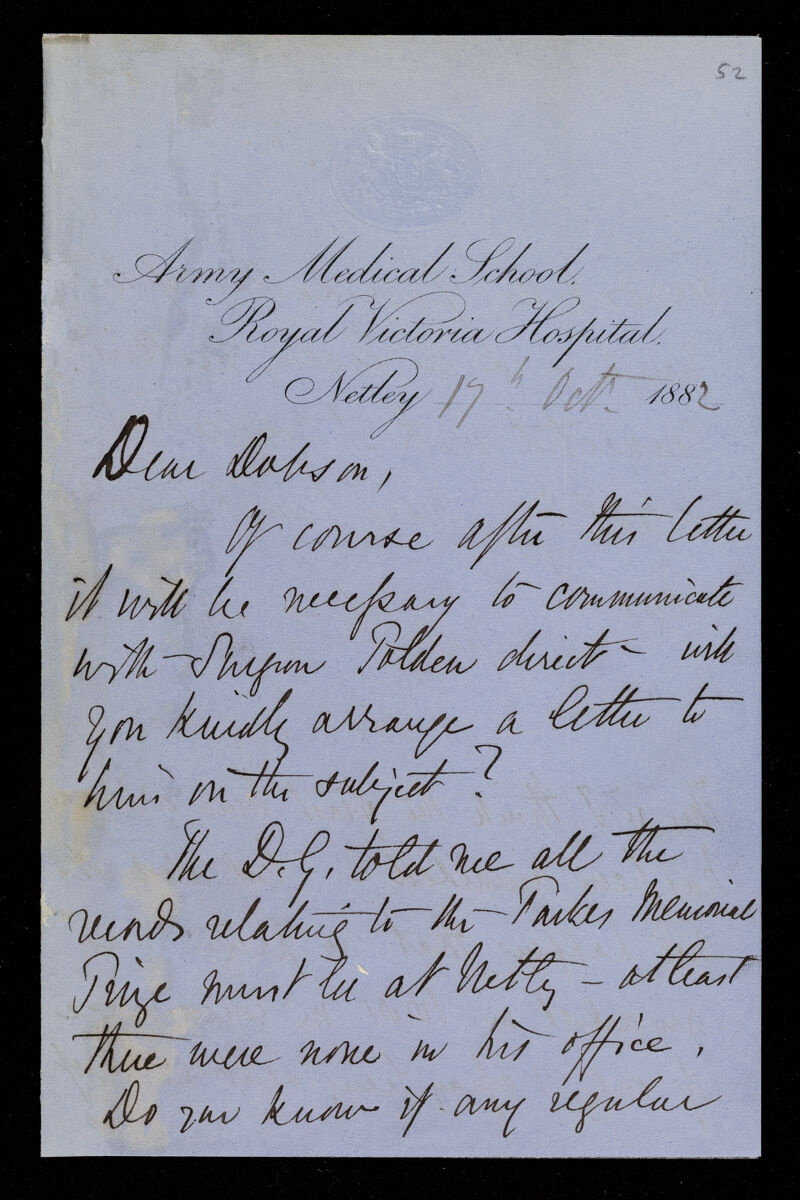 52
Army Medical School.
Royal Victoria Hospital.
Netley 17th Oct. 1882
Dear Dobson,
Of course after this letter
it will be necessary to communicate
with Surgeon Polden direct - will
you kindly arrange a letter to
him on the subject?
The D.G. told me all the
records relating to the Parkes Memorial
Prize must be at Netley - at least
there were none in his office.
Do you know if any regular